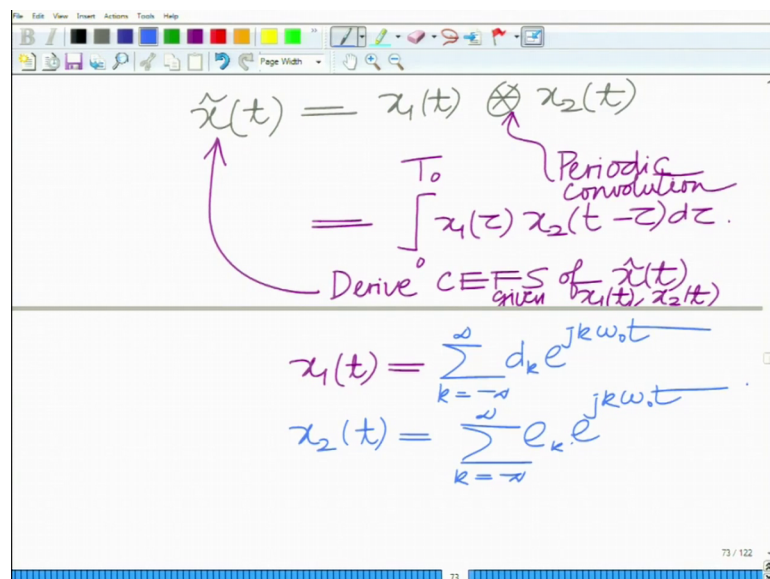 File Edit View Insert Actions Tools Help
B I
Page Width
x̃(t) = x₁(t) ⊛ x₂(t)
Periodic
convolution
= ∫₀^T₀ x₁(τ) x₂(t − τ) dτ .
Derive CEFS of x̃(t)
given x₁(t), x₂(t)
x₁(t) = ∑_{k=-∞}^{∞} dₖ e^{jkω₀t}
x₂(t) = ∑_{k=-∞}^{∞} eₖ e^{jkω₀t}
73 / 122
73